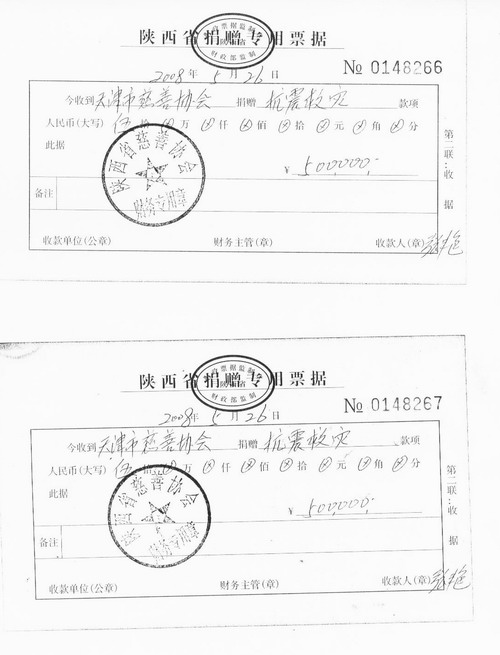 陕西省捐赠专用票据
收票据监制
陕西省
财政部监制
2008年5月26日
№ 0148266
今收到 天津市慈善协会 捐赠 抗震救灾 款项
人民币(大写) 伍拾⊗万⊗仟⊗佰⊗拾⊗元⊗角⊗分
此据
¥ 500,000.
陕西省慈善协会
财务专用章
备注
收款单位(公章) 财务主管(章) 收款人(章)
第二联:收据
陕西省捐赠专用票据
收票据监制
陕西省
财政部监制
2008年5月26日
№ 0148267
今收到 天津市慈善协会 捐赠 抗震救灾 款项
人民币(大写) 伍拾⊗万⊗仟⊗佰⊗拾⊗元⊗角⊗分
此据
¥ 500,000.
陕西省慈善协会
财务专用章
备注
收款单位(公章) 财务主管(章) 收款人(章)
第二联:收据